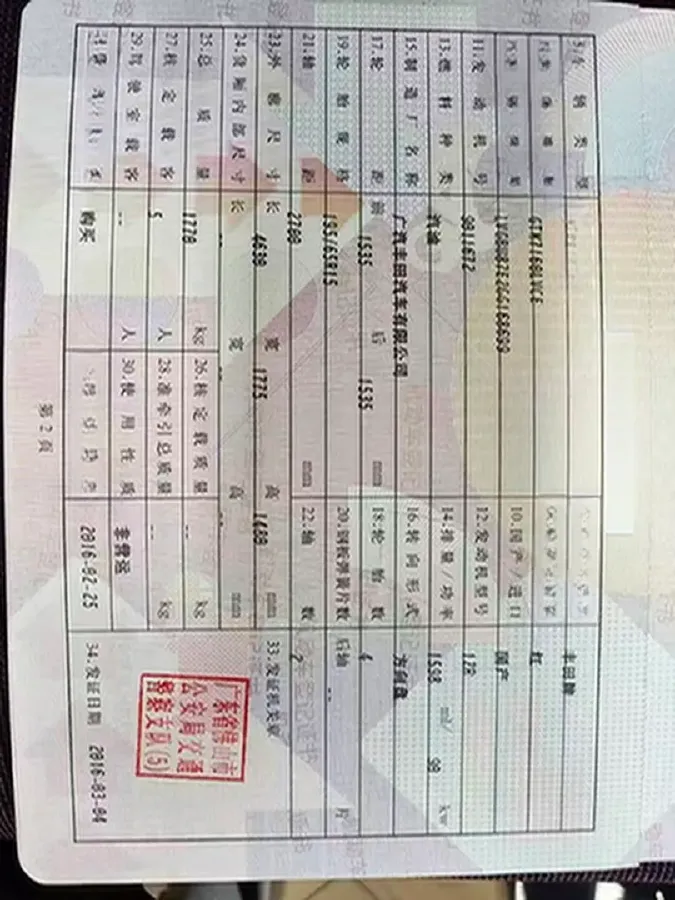 丰田牌
GTM7160LVCE
红
10.国产/进口 国产
11.发动机号 9811672 12.发动机型号 1ZR
13.燃料种类 汽油 14.排量/功率 1598 ml/ 90 kw
15.制造厂名称 广汽丰田汽车有限公司 16.转向形式 方向盘
17.轮距 前 1535 后 1535 mm 18.轮胎数 4
19.轮胎规格 195/65R15 20.钢板弹簧片数 后轴 -- 片
21.轴距 2700 mm 22.轴数 2
23.外廓尺寸 长 4630 宽 1775 高 1480 mm 33.发证机关章
24.货厢内部尺寸 长 -- 宽 -- 高 -- mm
25.总质量 1770 kg 26.核定载质量 -- kg
27.核定载客 5 人 28.准牵引总质量 -- kg
29.驾驶室载客 -- 人 30.使用性质 非营运
购买 2016-02-25 34.发证日期 2016-03-04
广东省佛山市
公安局交通
警察支队(5)
第 2 页